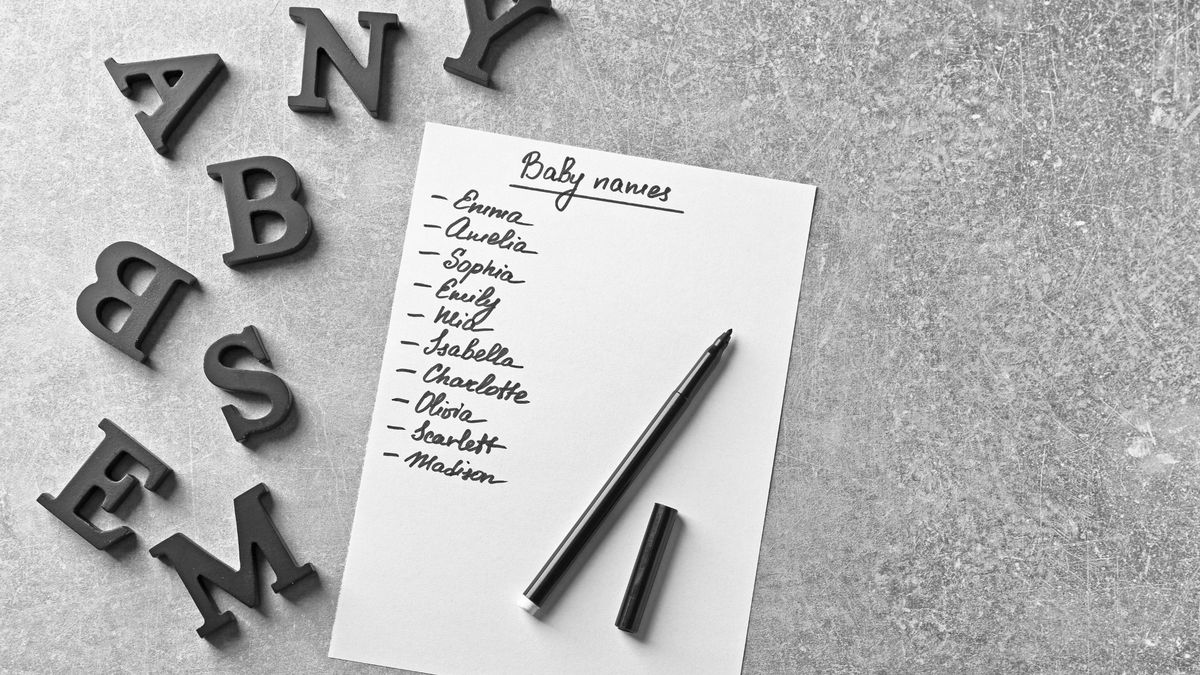 A N Y
B
B
S
E
M
Baby names
- Emma
- Amelia
- Sophia
- Emily
- Mia
- Isabella
- Charlotte
- Olivia
- Scarlett
- Madison